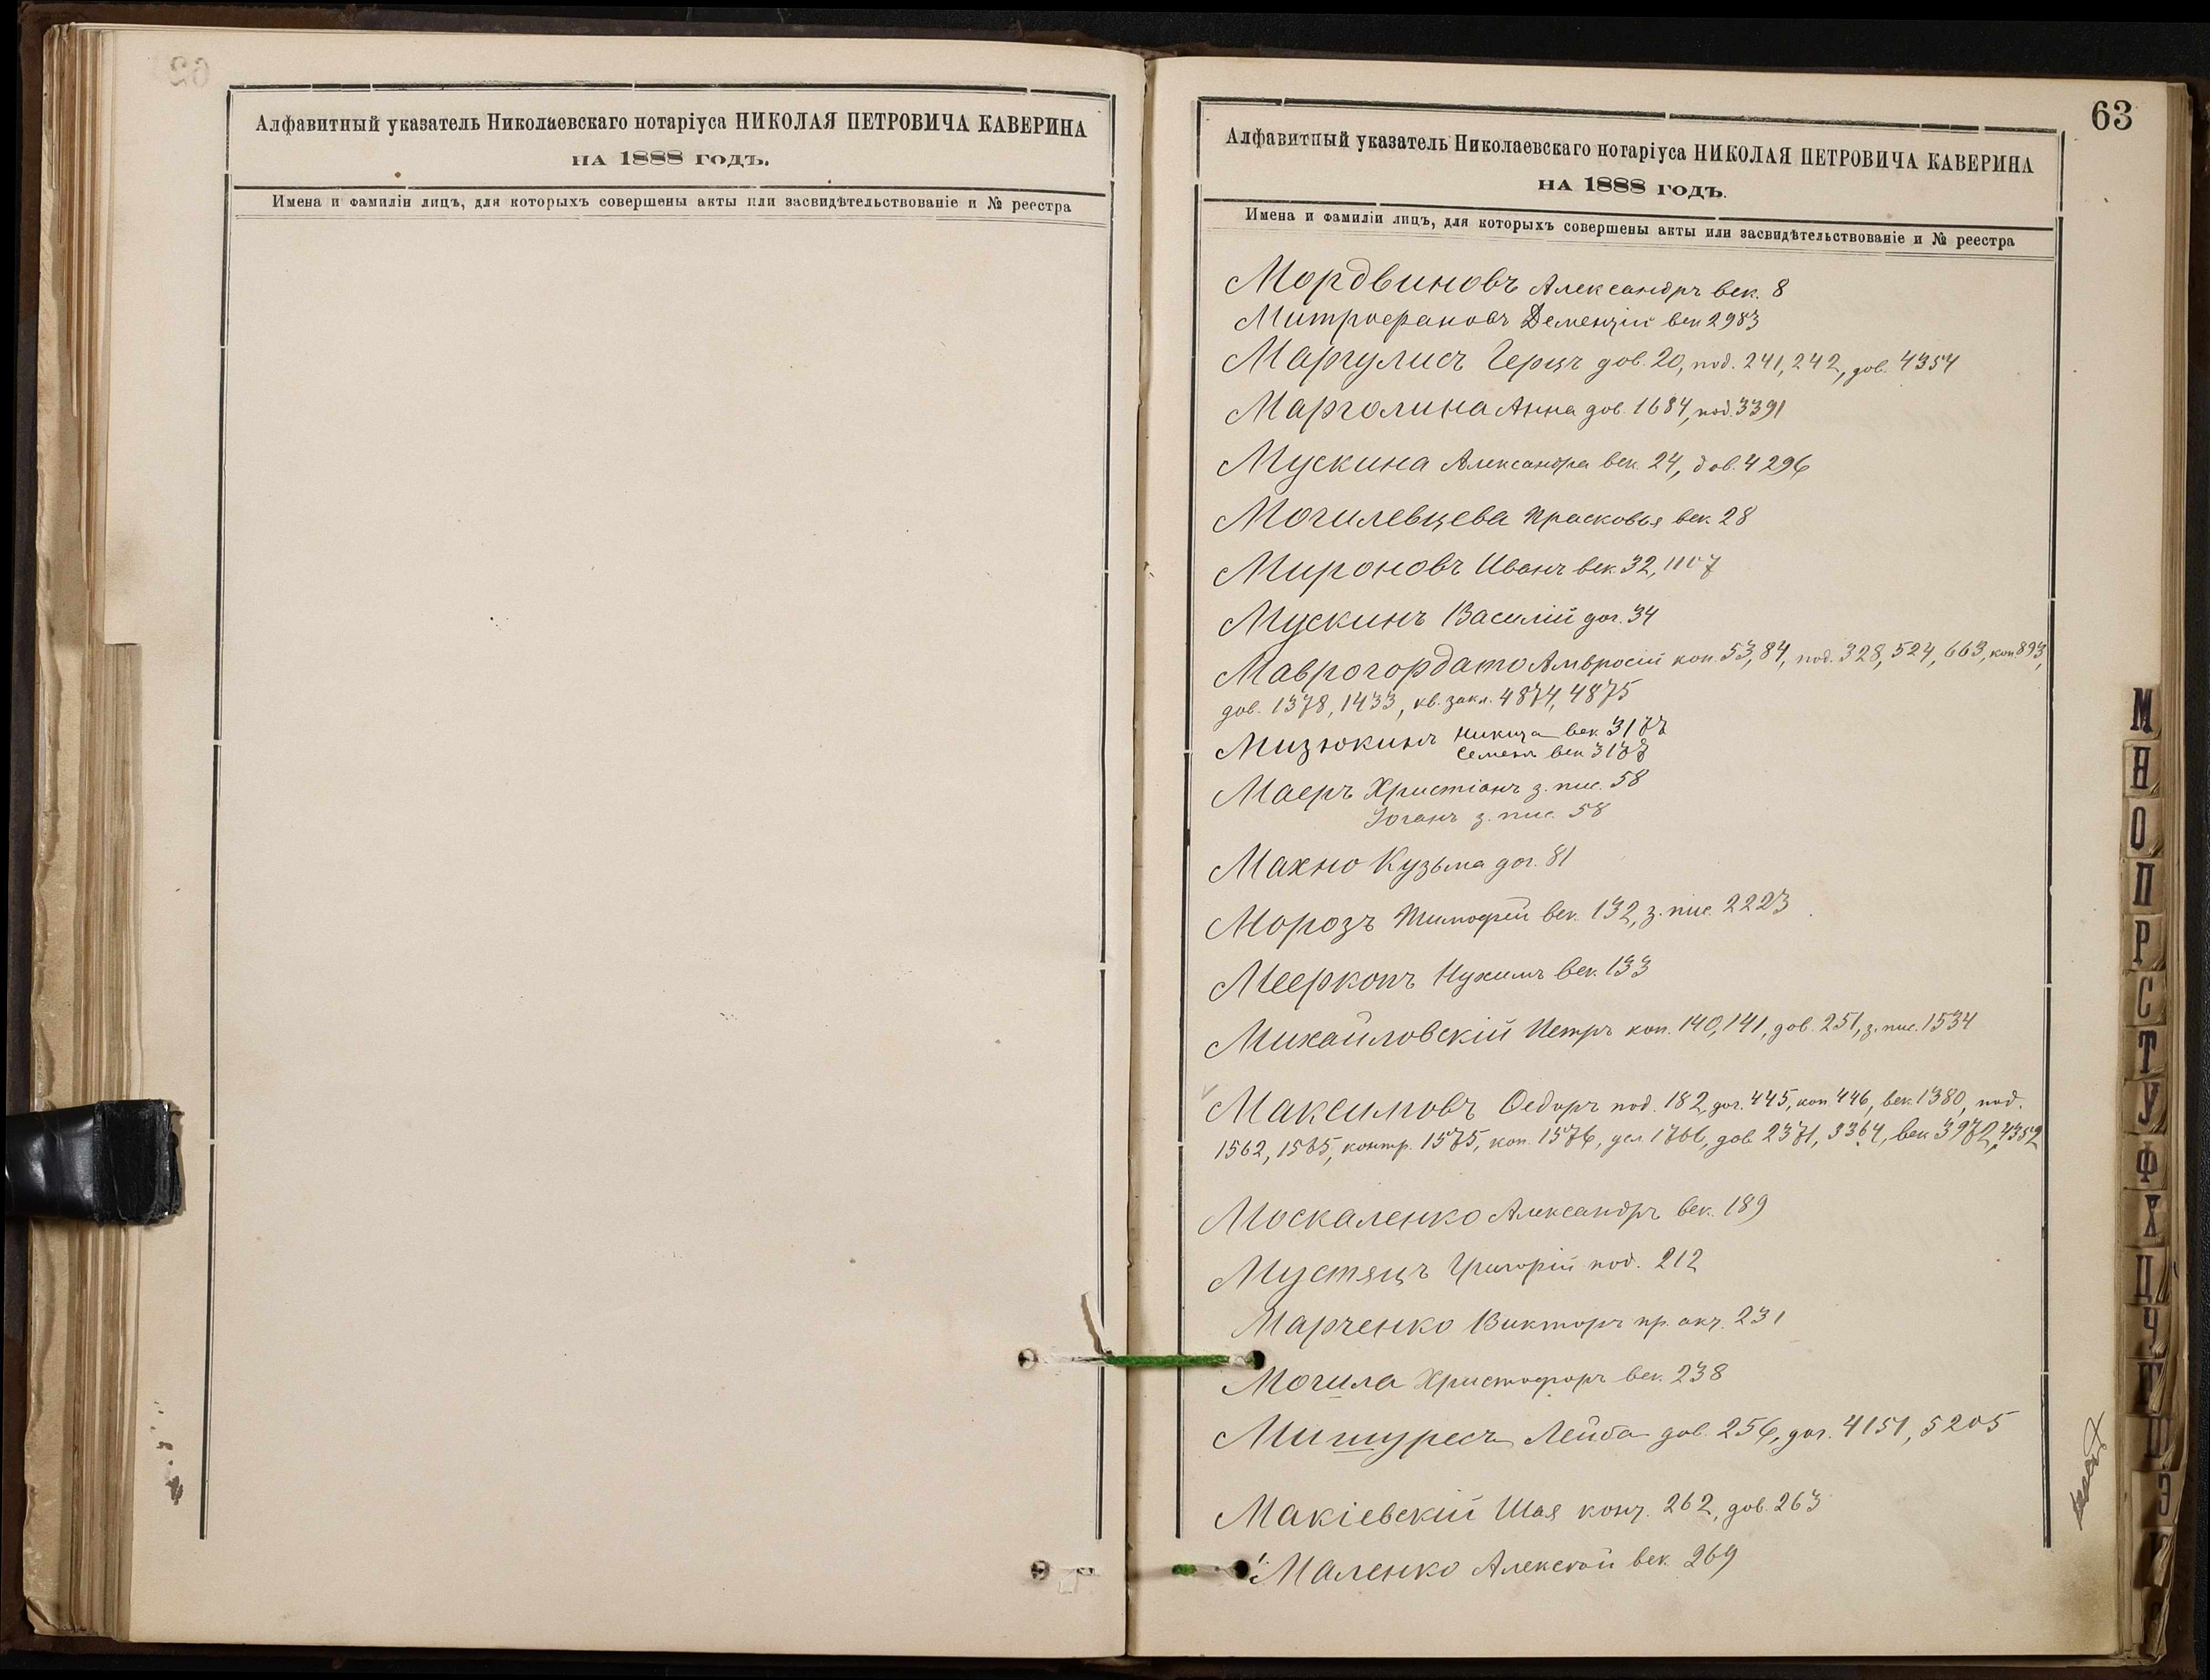 Алфавитный указатель Николаевскаго нотаріуса НИКОЛАЯ ПЕТРОВИЧА КАВЕРИНА
НА 1888 ГОДЪ.
Имена и фамиліи лицъ, для которыхъ совершены акты или засвидѣтельствованіе и № реестра
63
Алфавитный указатель Николаевскаго нотаріуса НИКОЛАЯ ПЕТРОВИЧА КАВЕРИНА
НА 1888 ГОДЪ.
Имена и фамиліи лицъ, для которыхъ совершены акты или засвидѣтельствованіе и № реестра
Мордвиновъ Александръ век. 8
Митрофановъ Дементій век 2983
Маргулисъ Герцъ дов. 20, под. 241, 242, дов. 4354
Марголина Анна дов. 1684, под. 3391
Мускина Александра век. 24, дов. 4296
Могилевцева Прасковья век. 28
Мироновъ Иванъ век. 32,
Мускинъ Василій дог. 34
Маврогордато Амвросій коп. 53, 84, под. 328, 524, 663, коп 893,
дов. 1378, 1433, кв. закл. 4874, 4875
Мизюкинъ Никита век
Семенъ век
Маеръ Христіанъ з. пис. 58
Іоганъ з. пис. 58
Махно Кузьма дог. 81
Морозъ Тимофей век. 132, з. пис. 2223
Мееркопъ Нухимъ век. 133
Михайловскій Петръ коп. 140, 141, дов. 251, з. пис. 1534
Максимовъ Федоръ под. 182, дог. 445, коп 446, век. 1380, под.
1562, 1565, контр. 1575, коп. 1576, дов. 2371, 3364, век 3972, 4352
Москаленко Александръ век. 189
Мустяцъ Григорій под. 212
Марченко Викторъ пр. акт. 231
Могила Христофоръ век. 238
Мишуресъ Лейба дов. 256, дог. 4151, 5205
Макіевскій Шая конт. 262, дов. 263
Маленко Алексѣй век. 269
М
Н
О
П
Р
С
Т
У
Ф
Х
Ц
Ч
Ш
Щ
Э